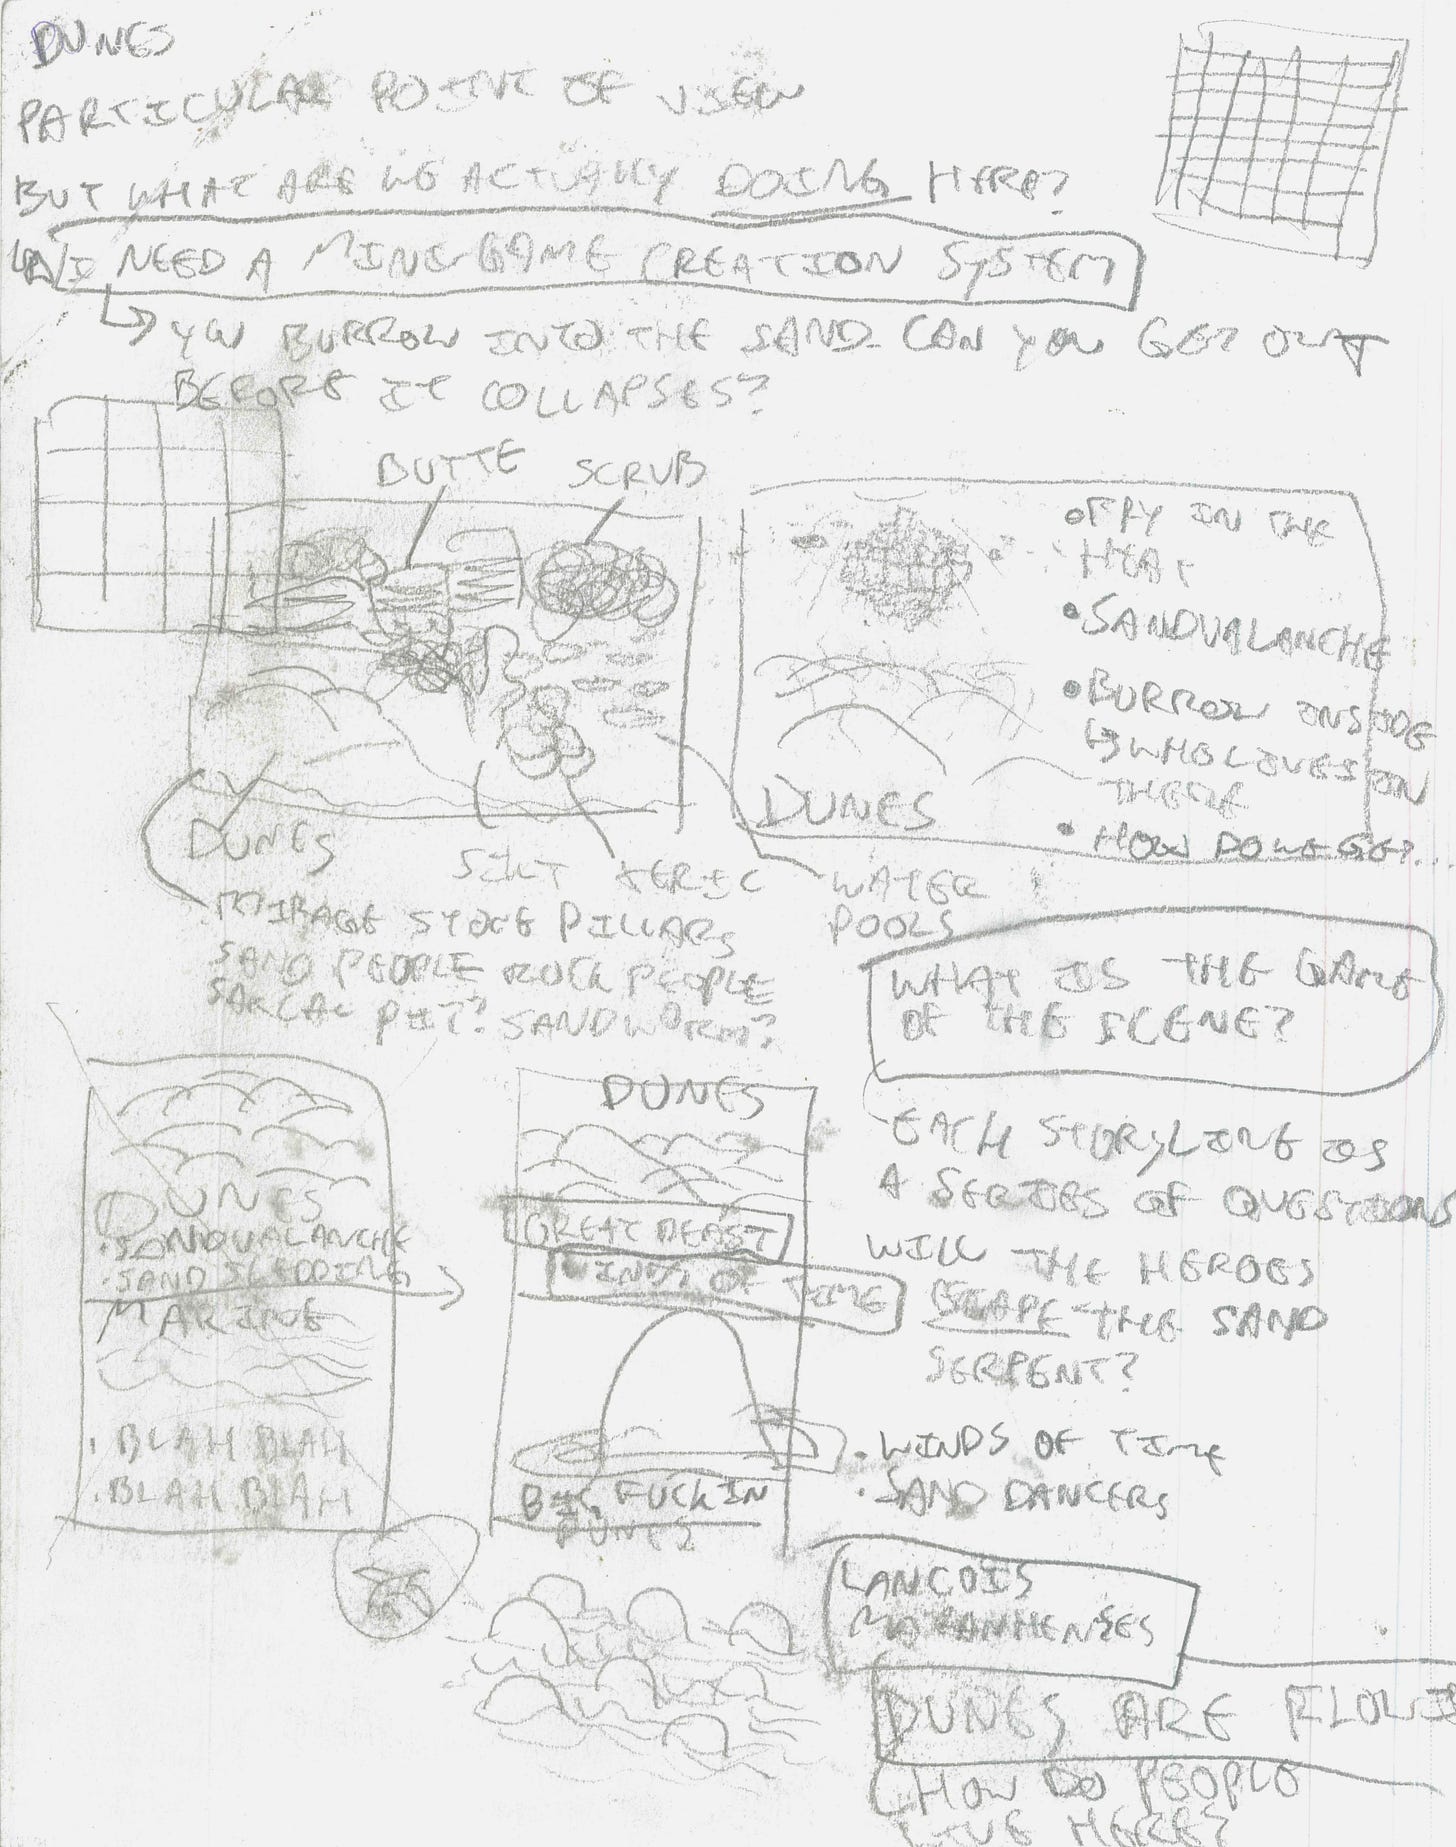 DUNES
PARTICULAR POINT OF VIEW
BUT WHAT ARE WE ACTUALLY DOING HERE?
I NEED A MINI-GAME CREATION SYSTEM
YOU BURROW INTO THE SAND. CAN YOU GET OUT
BEFORE IT COLLAPSES?
BUTTE
SCRUB
DUNES
SILT
XERIC
WATER
POOLS
MIRAGE STONE PILLARS
SAND PEOPLE ROCK PEOPLE
SARLAC PIT? SANDWORM?
• FRY IN THE
HEAT
• SANDVALANCHE
• BURROW INSIDE
WHO LIVES IN
THERE
• HOW DO WE GET...
DUNES
WHAT IS THE GAME
OF THE SCENE?
EACH STORYLINE IS
A SERIES OF QUESTIONS
WILL THE HEROES
ESCAPE THE SAND
SERPENT?
• WINDS OF TIME
• SAND DANCERS
DUNES
• SANDVALANCHE
• SAND SLEDDING
MARINE
• BLAH BLAH
• BLAH BLAH
DUNES
GREAT BEAST
WINDS OF TIME
BIG FUCKIN
DUNES
LANCOIS
DUNES ARE
HOW DO PEOPLE
LIVE HERE?